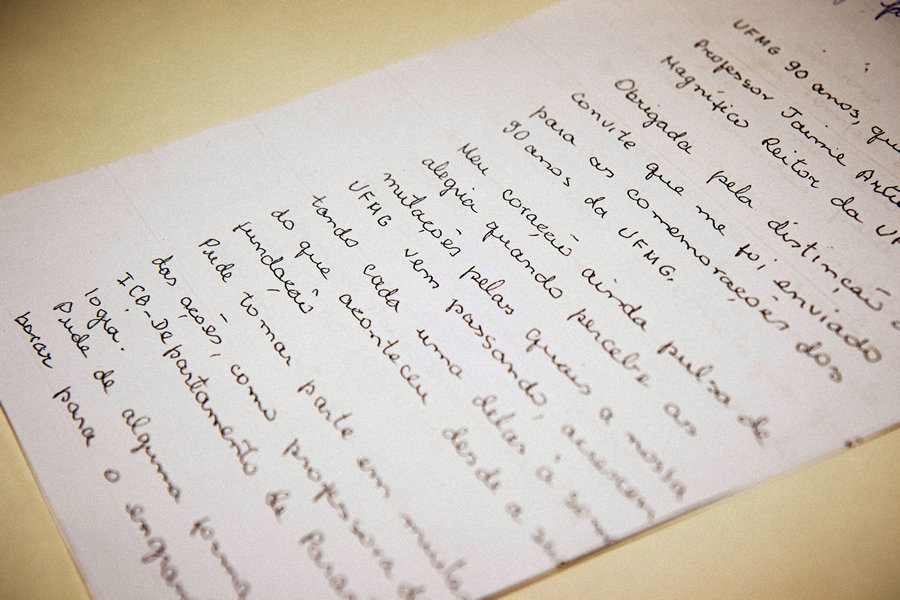 UFMG 90 anos,
Professor Jaime
Magnífico Reitor da
Obrigada pela distinção
convite que me foi enviado
para as comemorações dos
90 anos da UFMG.
Meu coração ainda pulsa de
alegria quando percebe as
mutações pelas quais a nossa
UFMG vem passando,
tando cada uma delas à
do que aconteceu desde a
fundação
Pude tomar parte em
das ações, como professora
ICB-Departamento de
logia.
Pude de alguma forma
borar para o